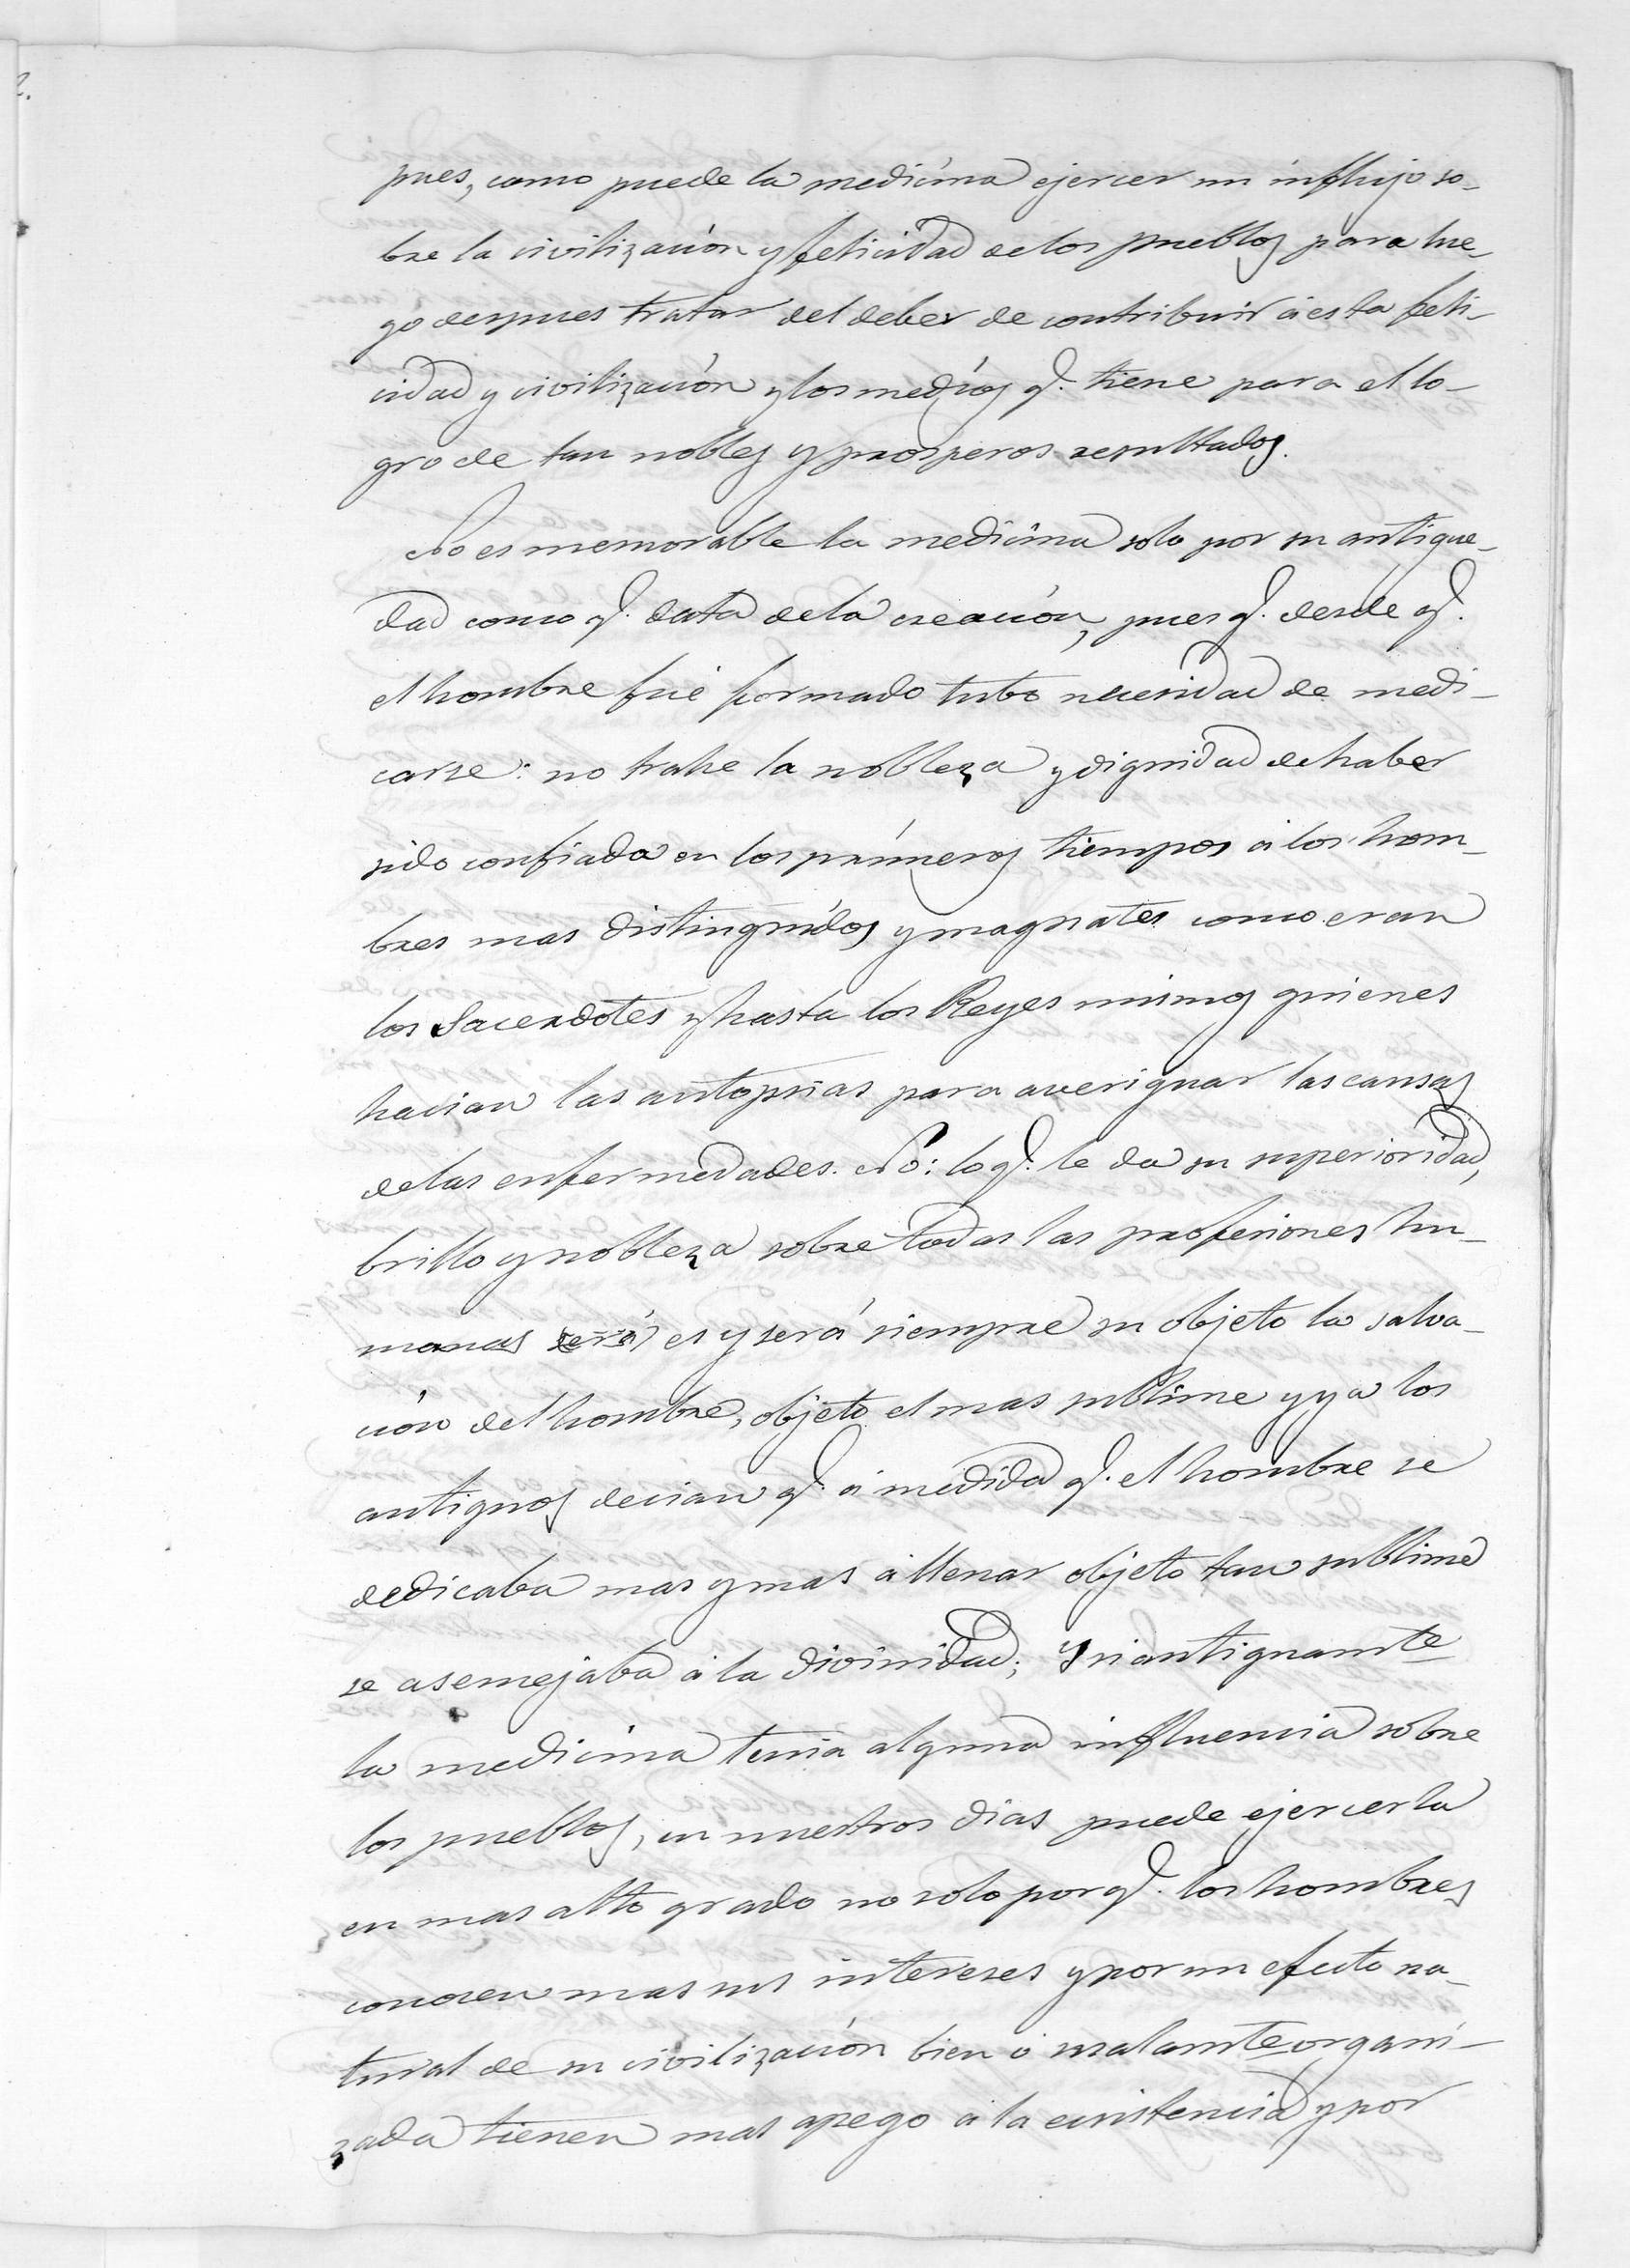 pues, como puede la medicina ejercer un influjo so-
bre la civilización y felicidad de los pueblos para lue-
go despues tratar del deber de contribuir á esta feli-
cidad y civilización y los medios q.e tiene para el lo-
gro de tan nobles y prosperos resultados.
No es memorable la medicina solo por su antigue-
dad como q.e data de la creación, pues q.e desde q.e
el hombre fué formado tubo necesidad de medi-
carse: no trahe la nobleza y dignidad de haber
sido confiada en los primeros tiempos á los hom-
bres mas distinguidos y magnates como eran
los Sacerdotes y hasta los Reyes mismos quienes
hacian las autopsias para averiguar las causas
de las enfermedades. No: lo q.e le da su superioridad,
brillo y nobleza sobre todas las profesiones hu-
manas será es y será siempre su objeto la salva-
ción del hombre, objeto el mas sublime y ya los
antiguos decian q.e á medida q.e el hombre se
dedicaba mas y mas á llenar objeto tan sublime
se asemejaba á la divinidad; Y si antiguamte
la medicina tenia alguna influencia sobre
los pueblos, en nuestros dias puede ejercerla
en mas alto grado no solo porq.e los hombres
conocen mas sus intereses y por un efecto na-
tural de su civilización bien ó malamte organi-
zada tienen mas apego á la existencia y por